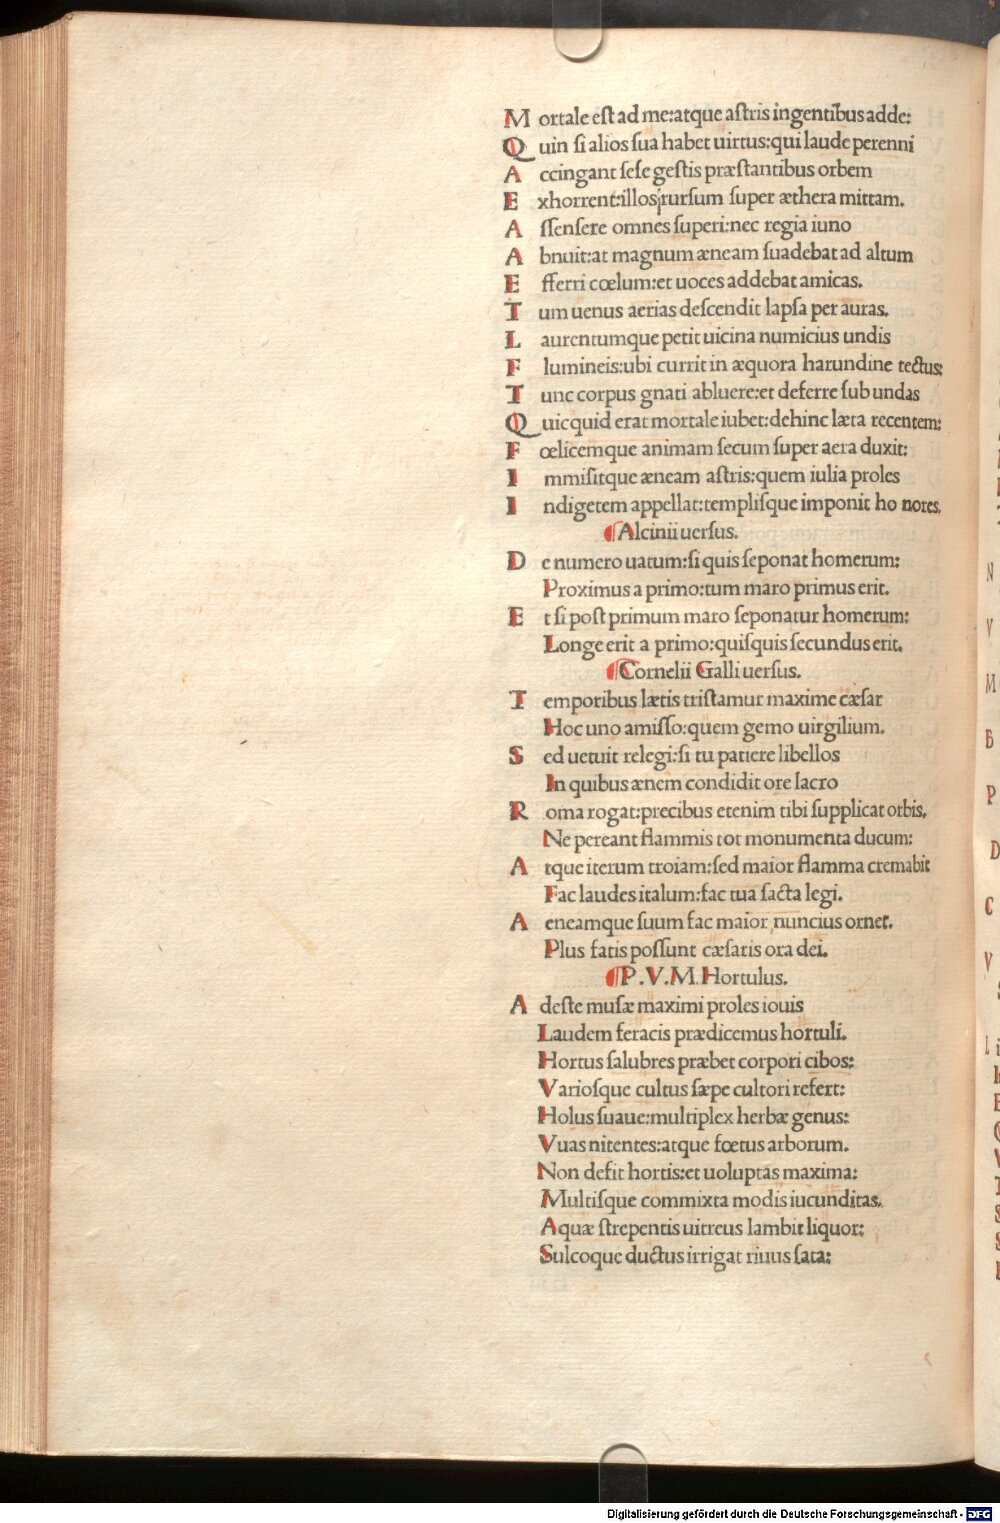 M ortale eſt ad me:atque aſtris ingentibus adde:
Q uin ſi alios ſua habet uirtus:qui laude perenni
A ccingant ſeſe geſtis præſtantibus orbem
E xhorrent:illos rurſum ſuper æthera mittam.
A ſſenſere omnes ſuperi:nec regia iuno
A bnuit:at magnum æneam ſuadebat ad altum
E fferri cœlum:et uoces addebat amicas.
T um uenus aerias deſcendit lapſa per auras.
L aurentumque petit uicina numicius undis
F lumineis:ubi currit in æquora harundine tectus:
T unc corpus gnati abluere:et deferre ſub undas
Q uicquid erat mortale iubet:dehinc læta recentem:
F œlicemque animam ſecum ſuper aera duxit:
I mmiſitque æneam aſtris:quem iulia proles
I ndigetem appellat:templiſque imponit ho nores.
¶Alcinii uerſus.
D e numero uatum:ſi quis ſeponat homerum:
Proximus a primo:tum maro primus erit.
E t ſi poſt primum maro ſeponatur homerum:
Longe erit a primo:quiſquis ſecundus erit.
¶Cornelii Galli uerſus.
T emporibus lætis triſtamur maxime cæſar
Hoc uno amiſſo:quem gemo uirgilium.
S ed uetuit relegi:ſi tu patiere libellos
In quibus ænem condidit ore ſacro
R oma rogat:precibus etenim tibi ſupplicat orbis.
Ne pereant flammis tot monumenta ducum:
A tque iterum troiam:ſed maior flamma cremabit
Fac laudes italum:fac tua facta legi.
A eneamque ſuum fac maior nuncius ornet.
Plus fatis poſſunt cæſaris ora dei.
¶P.V.M.Hortulus.
A deſte muſæ maximi proles iouis
Laudem feracis prædicemus hortuli.
Hortus ſalubres præbet corpori cibos:
Varioſque cultus ſæpe cultori refert:
Holus ſuaue:multiplex herbæ genus:
Vuas nitentes:atque fœtus arborum.
Non deſit hortis:et uoluptas maxima:
Multiſque commixta modis iucunditas.
Aquæ ſtrepentis uitreus lambit liquor:
Sulcoque ductus irrigat riuus ſata:
N
V
M
B
P
D
C
V
L i
Digitalisierung gefördert durch die Deutsche Forschungsgemeinschaft - DFG